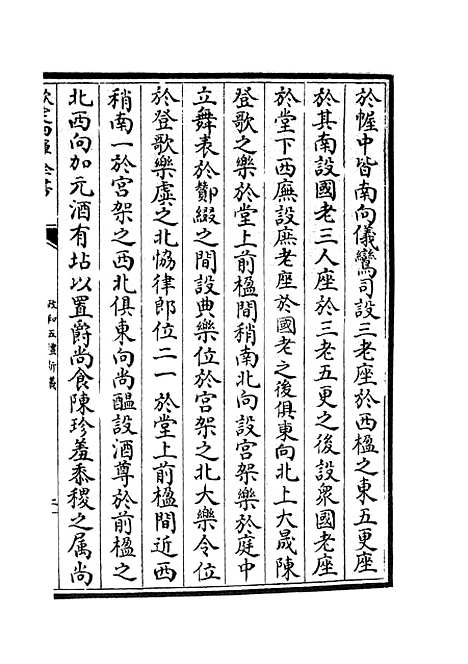 於幄中皆南向儀鸞司設三老座於西楹之東五更座
於其南設國老三人座於三老五更之後設衆國老座
於堂下西廡設庶老座於國老之後俱東向北上大晟陳
登歌之樂於堂上前楹間稍南北向設宮架樂於庭中
立舞表於酂綴之間設典樂位於宮架之北大樂令位
於登歌樂虡之北協律郎位二一於堂上前楹間近西
稍南一於宮架之西北俱東向尚醖設酒尊於前楹之
北西向加元酒有坫以置爵尚食陳珍羞黍稷之属尚
欽定四庫全書
政和五禮新儀